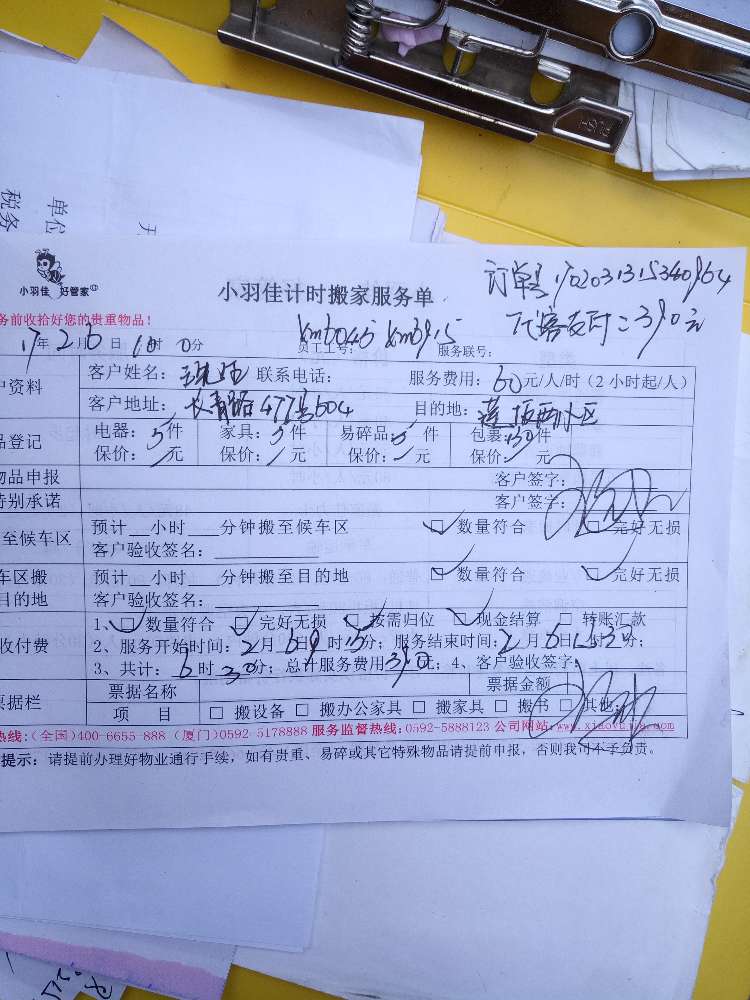 税务
单位
小羽佳 好管家
小羽佳计时搬家服务单
订单号1702031315340964
务前收拾好您的贵重物品!
代客支付:390元
17年2月6日10时0分
员工工号:xm6045 xm3915
服务联号:
户资料
客户姓名:
联系电话:
服务费用:60元/人/时(2小时起/人)
客户地址:长青路477号604
目的地:莲坂西小区
品登记
电器:5件
家具:5件
易碎品:5件
包裹:30件
保价:/元
保价:/元
保价:/元
保价:/元
物品申报
客户签字:
特别承诺
客户签字:
至候车区
预计__小时___分钟搬至候车区
☑数量符合
☑完好无损
客户验收签名:
车区搬
目的地
预计__小时___分钟搬至目的地
☑数量符合
☑完好无损
客户验收签名:
收付费
1、☑数量符合 ☑完好无损 ☑按需归位 ☑现金结算 □转账汇款
2、服务开始时间:2月6日9时15分; 服务结束时间:2月6日
3、共计:6时30分; 总计服务费用390元; 4、客户验收签字:
票据栏
票据名称
票据金额
项 目
□搬设备 □搬办公家具 □搬家具 □搬书 □其他:
热线:(全国)400-6655 888 (厦门)0592-5178888 服务监督热线:0592-5888123 公司网站:www.xiaoyujia.com
提示:请提前办理好物业通行手续,如有贵重、易碎或其它特殊物品请提前申报,否则我司不予负责。